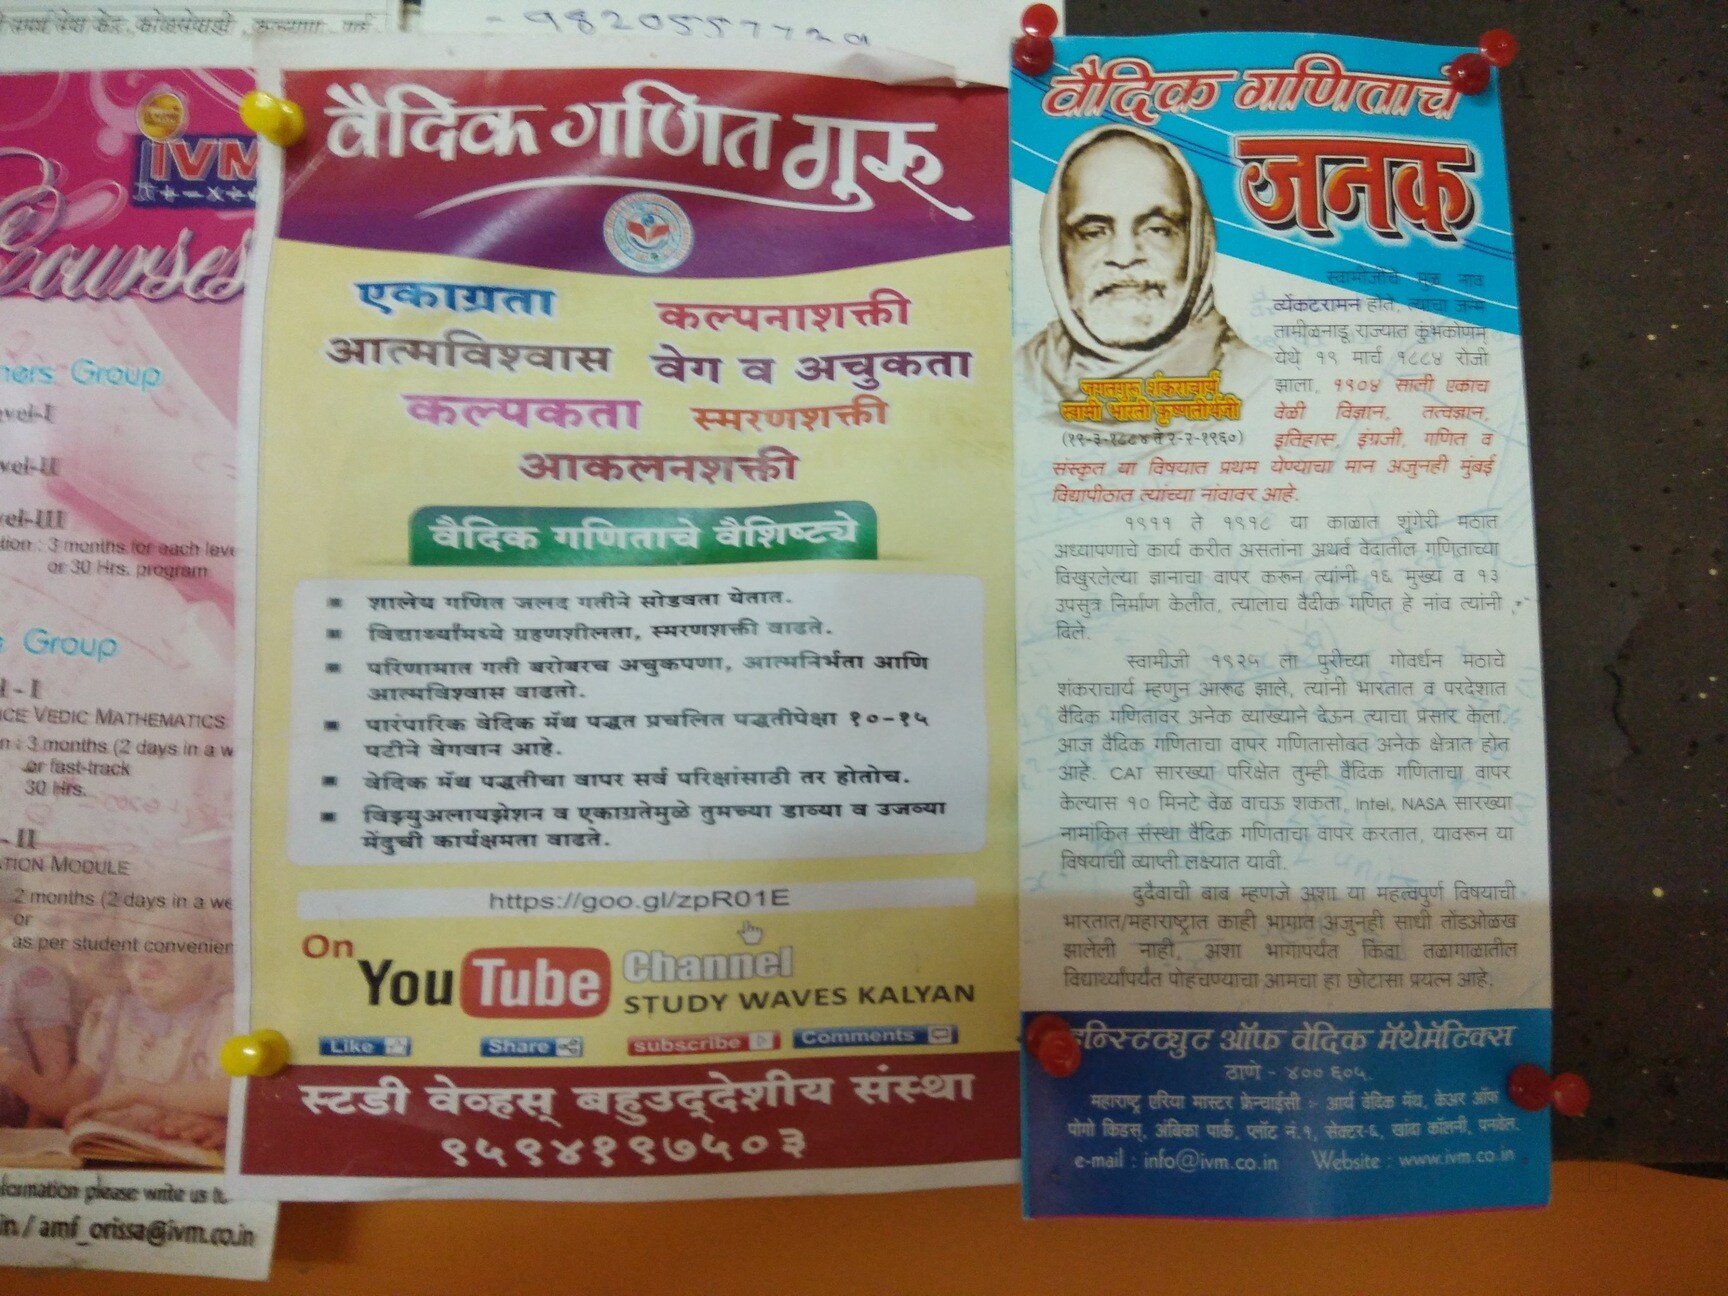 कोळसेवाडी, कल्याण
- 9820557729
IVM
Courses
Group
3 months for each leve
or 30 Hrs. program
Group
VEDIC MATHEMATICS
3 months (2 days in a w
or fast-track
30 Hrs.
MODULE
2 months (2 days in a we
or
as per student convenien
please write us
amf_orissa@ivm.co.in
वैदिक गणित गुरू
एकाग्रता कल्पनाशक्ती
आत्मविश्वास वेग व अचुकता
कल्पकता स्मरणशक्ती
आकलनशक्ती
वैदिक गणिताचे वैशिष्ट्ये
शालेय गणित जलद गतीने सोडवता येतात.
विद्यार्थ्यांमध्ये ग्रहणशीलता, स्मरणशक्ती वाढते.
परिणामात गती बरोबरच अचुकपणा, आत्मनिर्भता आणि
आत्मविश्वास वाढतो.
पारंपारिक वेदिक मॅथ पद्धत प्रचलित पद्धतीपेक्षा १०-१५
पटीने वेगवान आहे.
वेदिक मॅथ पद्धतीचा वापर सर्व परिक्षांसाठी तर होतोच.
विझ्युअलायझेशन व एकाग्रतेमुळे तुमच्या डाव्या व उजव्या
मेंदुची कार्यक्षमता वाढते.
https://goo.gl/zpR01E
On YouTube Channel
STUDY WAVES KALYAN
Like Share subscribe Comments
स्टडी वेव्हस् बहुउद्देशीय संस्था
९५९४१९७५०३
वैदिक गणिताचे
जनक
स्वामीजींचे मुळ नाव
व्येंकटरामन होते, त्यांचा जन्म
तामीळनाडू राज्यात कुंभकोणम्
येथे १९ मार्च १८८४ रोजी
झाला. १९०४ साली एकाच
वेळी विज्ञान, तत्वज्ञान,
इतिहास, इंग्रजी, गणित व
संस्कृत या विषयात प्रथम येण्याचा मान अजुनही मुंबई
विद्यापीठात त्यांच्या नांवावर आहे.
जगतगुरू शंकराचार्य
स्वामी भारती कृष्णतीर्थजी
(१९-३-१८८४ ते २-२-१९६०)
१९११ ते १९१८ या काळात श्रृंगेरी मठात
अध्यापणाचे कार्य करीत असतांना अथर्व वेदातील गणिताच्या
विखुरलेल्या ज्ञानाचा वापर करून त्यांनी १६ मुख्य व १३
उपसुत्र निर्माण केलीत, त्यालाच वैदीक गणित हे नांव त्यांनी
दिले.
स्वामीजी १९२५ ला पुरीच्या गोवर्धन मठाचे
शंकराचार्य म्हणुन आरूढ झाले, त्यांनी भारतात व परदेशात
वैदिक गणितावर अनेक व्याख्याने देऊन त्याचा प्रसार केला.
आज वैदिक गणिताचा वापर गणितासोबत अनेक क्षेत्रात होत
आहे. CAT सारख्या परिक्षेत तुम्ही वैदिक गणिताचा वापर
केल्यास १० मिनटे वेळ वाचऊ शकता. Intel, NASA सारख्या
नामांकित संस्था वैदिक गणिताचा वापर करतात, यावरून या
विषयाची व्याप्ती लक्ष्यात यावी.
दुदैवाची बाब म्हणजे अशा या महत्वपुर्ण विषयाची
भारतात/महाराष्ट्रात काही भागात अजुनही साधी तोंडओळख
झालेली नाही, अशा भागापर्यंत किंवा तळागाळातील
विद्यार्थ्यांपर्यंत पोहचण्याचा आमचा हा छोटासा प्रयत्न आहे.
इन्स्टिट्युट ऑफ वेदिक मॅथेमॅटिक्स
ठाणे - ४०० ६०५.
महाराष्ट्र एरिया मास्टर फ्रेन्चाईसी :- आर्य वेदिक मॅथ, केअर ऑफ
पोगो किडस्, अंबिका पार्क, प्लॉट नं.१, सेक्टर-६, खांदा कॉलनी, पनवेल.
e-mail : info@ivm.co.in Website : www.ivm.co.in